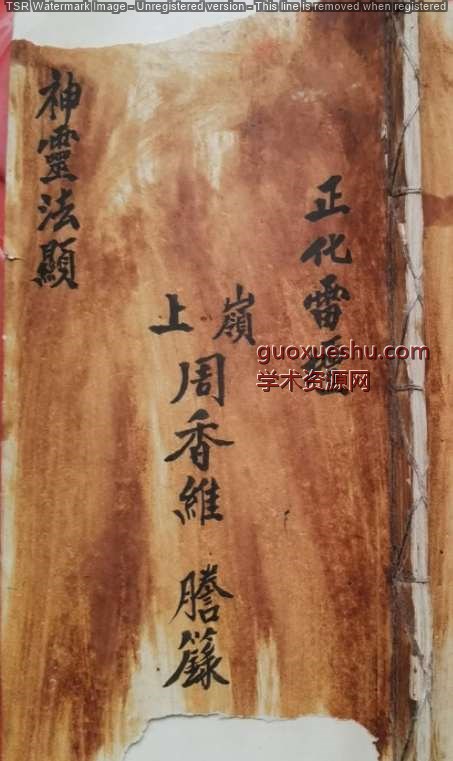 TSR Watermark Image - Unregistered version - This line is removed when registered
正化雷壇
嶺上
周香維 謄籙
神靈法顯
guoxueshu.com
学术资源网